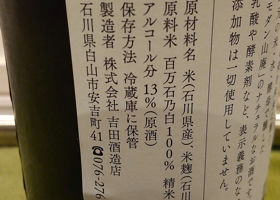 乳酸や酵素剤など、表示義務のな
添加物は一切使用していません。
原材料名 米(石川県産)、米麹(石川
原料米 百万石乃白100% 精米
アルコール分 13%(原酒)
保存方法 冷蔵庫に保管
製造者 株式会社 吉田酒造店
石川県白山市安吉町41 ☎076-276